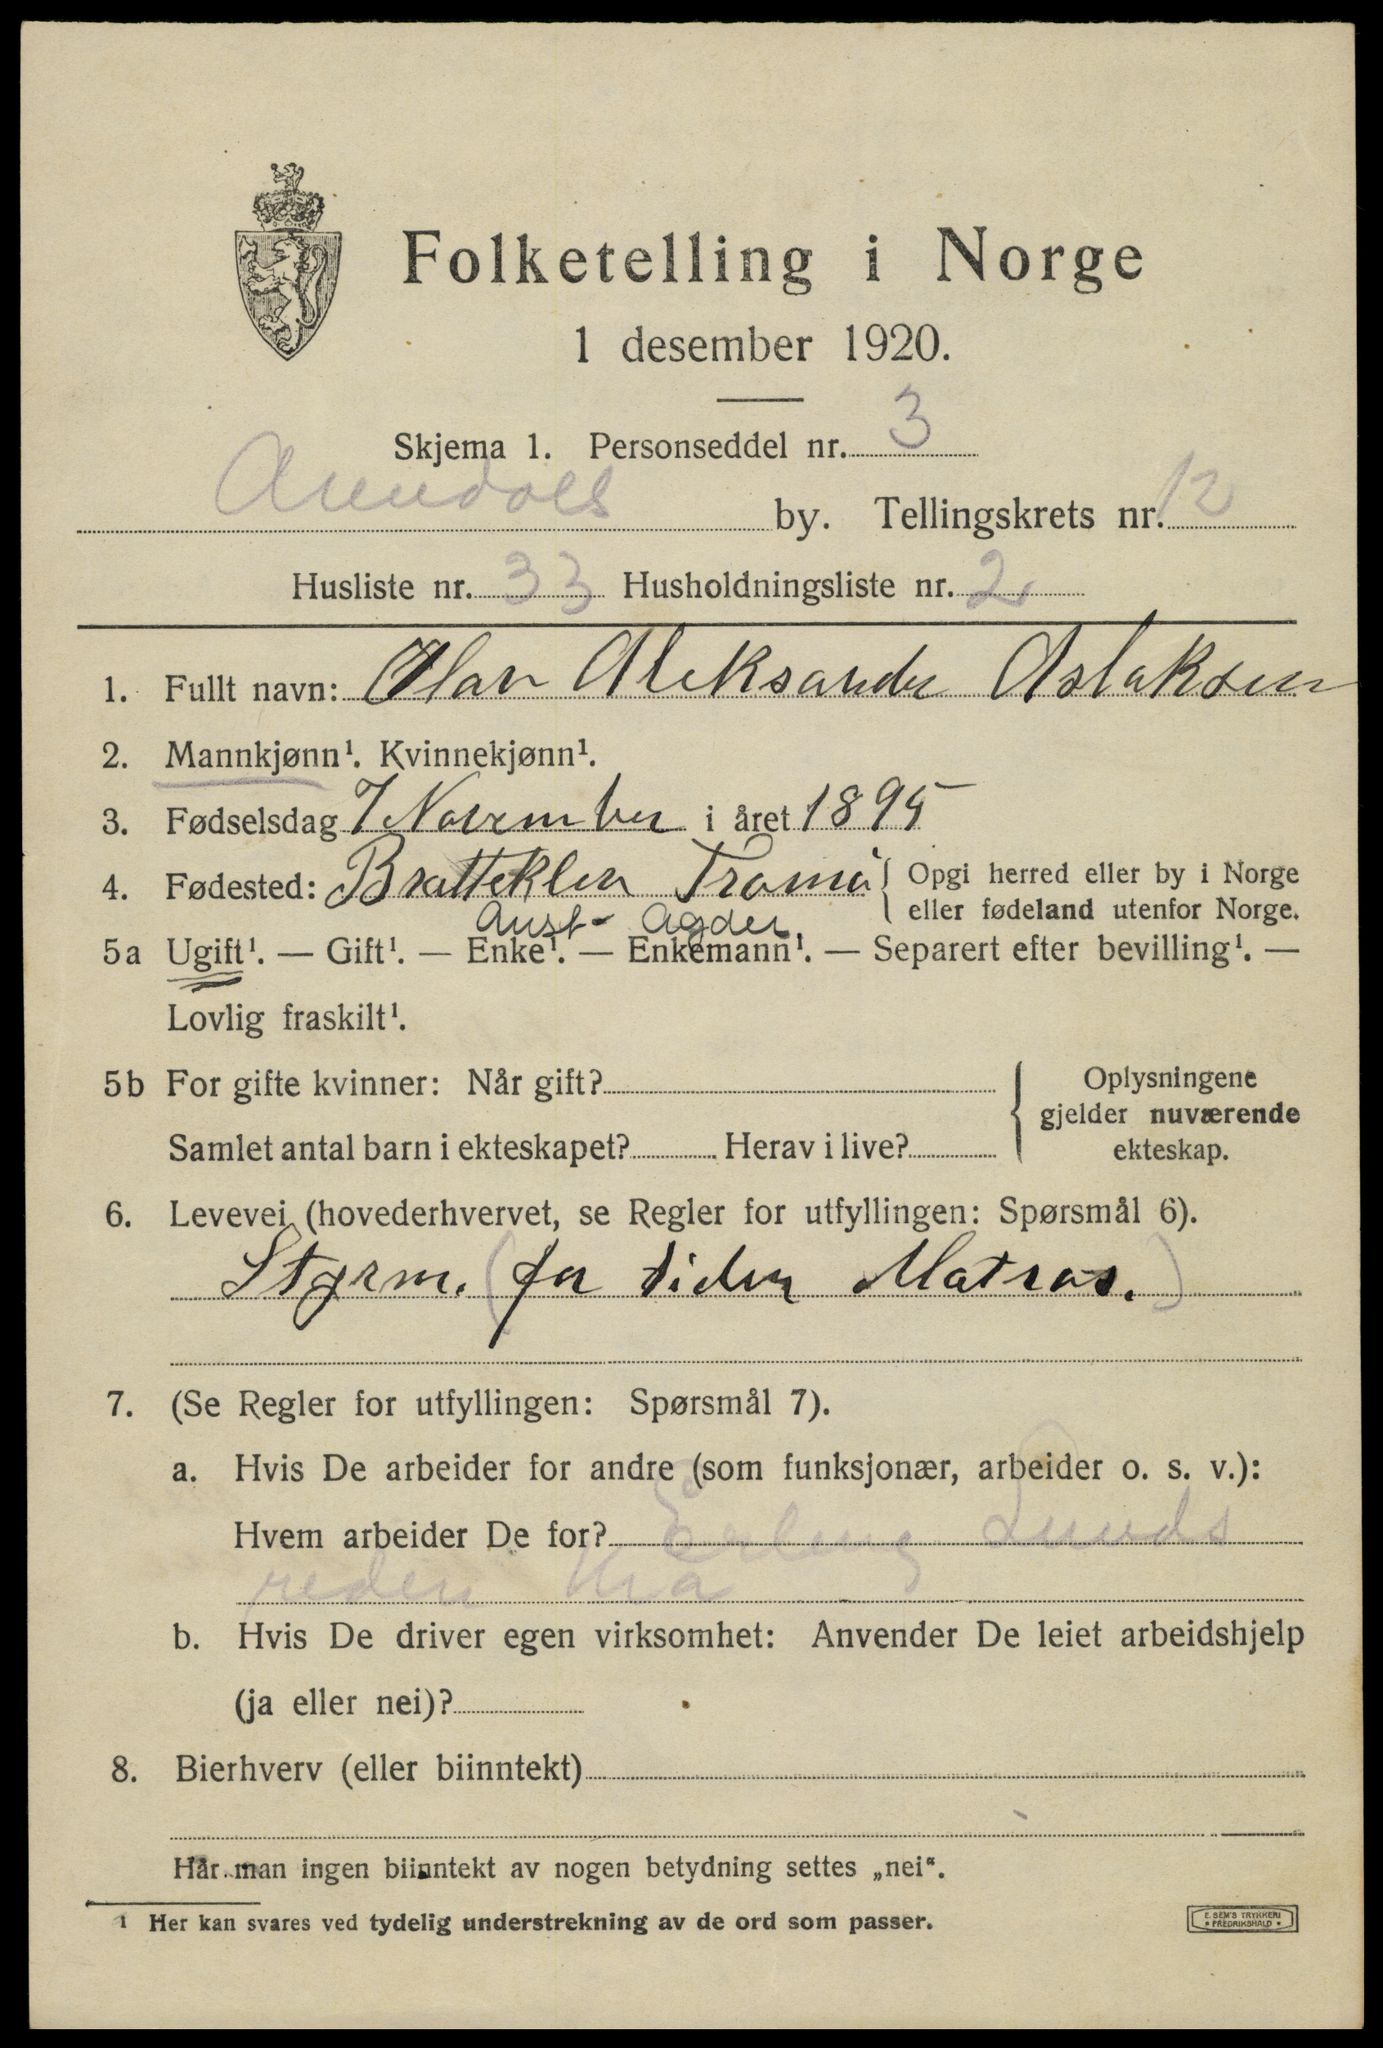 Folketelling i Norge
1 desember 1920.
Skjema 1. Personseddel nr. 3
Arendals by. Tellingskrets nr. 12
Husliste nr. 33 Husholdningsliste nr. 2
1. Fullt navn: Olav Aleksander Aslaksen
2. Mannkjønn¹. Kvinnekjønn¹.
3. Fødselsdag 7 November i året 1895
4. Fødested: Bratteklev Tromø { Opgi herred eller by i Norge
eller fødeland utenfor Norge.
Aust-Agder.
5a Ugift¹. — Gift¹. — Enke¹. — Enkemann¹. — Separert efter bevilling¹. —
Lovlig fraskilt¹.
5b For gifte kvinner: Når gift?
Samlet antal barn i ekteskapet? Herav i live?
Oplysningene
gjelder nuværende
ekteskap.
6. Levevei (hovederhvervet, se Regler for utfyllingen: Spørsmål 6).
Styrm. (for tiden Matros.)
7. (Se Regler for utfyllingen: Spørsmål 7).
a. Hvis De arbeider for andre (som funksjonær, arbeider o. s. v.):
Hvem arbeider De for? Erling Lunds
rederi Kra
b. Hvis De driver egen virksomhet: Anvender De leiet arbeidshjelp
(ja eller nei)?
8. Bierhverv (eller biinntekt)
Har man ingen biinntekt av nogen betydning settes „nei“.
¹ Her kan svares ved tydelig understrekning av de ord som passer.
E. SEM'S TRYKKERI
• FREDRIKSHALD •